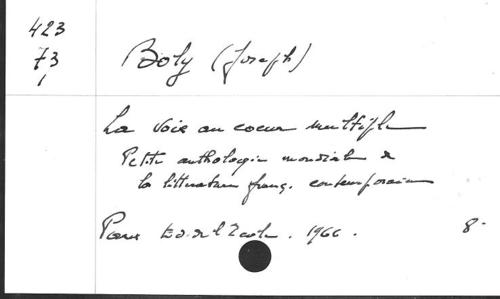 423
73
1
Boly (Joseph)
La Voix au coeur multiple
Petite anthologie mondiale de
la littérature franç. contemporaine
Paris Ed. de l'Ecole. 1966. 8°